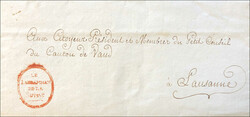 Aux Citoyens Président et Membres du Petit Conseil
du Canton de Vaud
à Lausanne
LE
DE LA